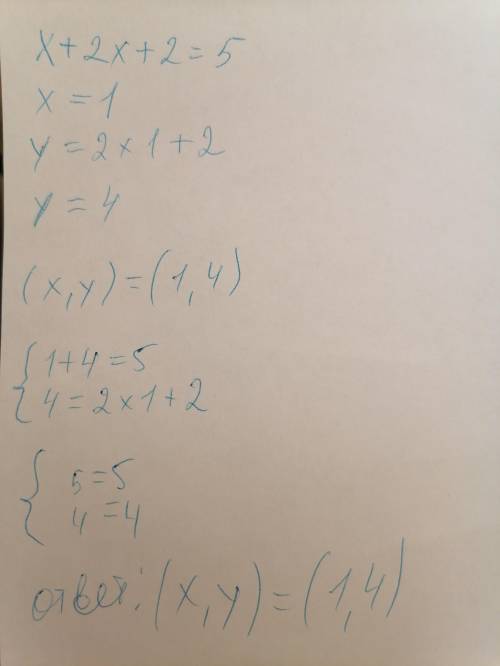 x+2x+2=5
x=1
y=2×1+2
y=4
(x,y)=(1,4)
{ 1+4=5
4=2×1+2
{ 5=5
4=4
ответ: (x,y)=(1,4)